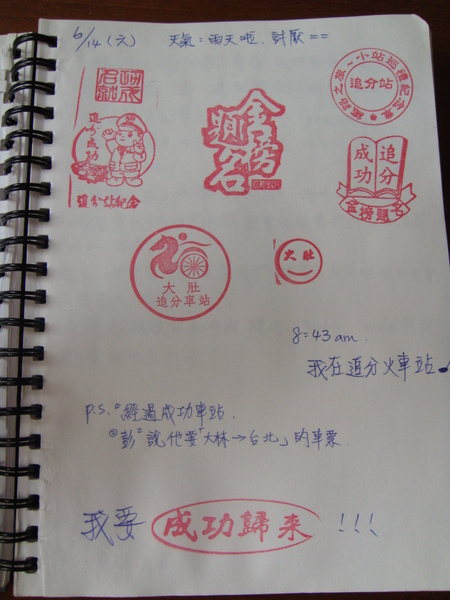 6/14(六) 天氣：雨天啦. 討厭==
功成
名就
追分成功
追分站紀念
金榜
題名
鐵路之旅~小站巡禮紀念章
追分站
追分
成功
金榜題名
大肚
追分車站
大肚
8:43 am.
我在追分火車站♪
P.S.①經過成功車站.
②彭彭說他要「大林→台北」的車票
我要 成功歸來 !!!